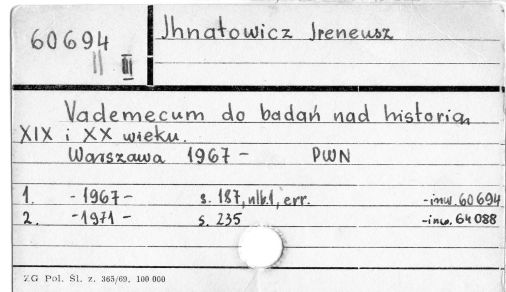 60694
II III
Ihnatowicz Ireneusz
Vademecum do badań nad historią
XIX i XX wieku.
Warszawa 1967 - PWN
1. - 1967 - s. 187, nlb.1, err. - inw. 60694
2. - 1971 - s. 235 - inw. 64088
ZG Pol. Śl. z. 365/69. 100 000